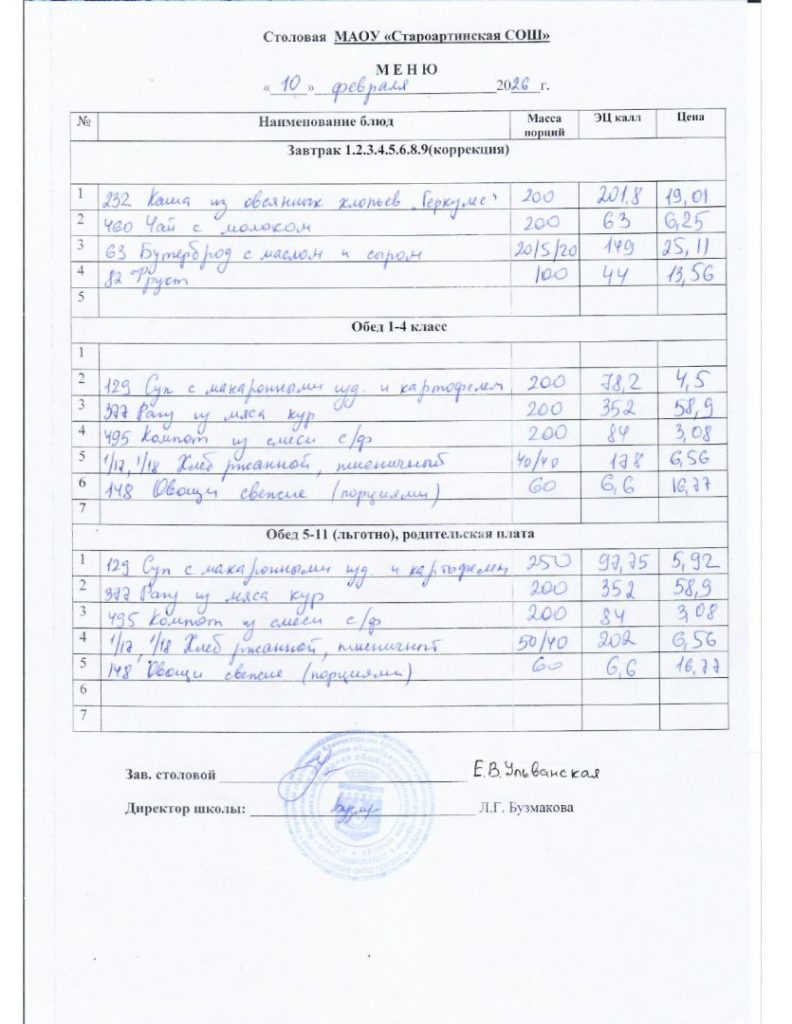 Столовая МАОУ «Староартинская СОШ»
М Е Н Ю
« 10 » февраля 2026 г.
№ Наименование блюд Масса порций ЭЦ калл Цена
Завтрак 1.2.3.4.5.6.8.9(коррекция)
1 232 Каша из овсяных хлопьев „Геркулес" 200 201,8 19,01
2 460 Чай с молоком 200 63 6,25
3 63 Бутерброд с маслом и сыром 20/5/20 149 25,11
4 82 Фрукт 100 44 13,56
5
Обед 1-4 класс
1
2 129 Суп с макаронными изд. и картофелем 200 78,2 4,5
3 377 Рагу из мяса кур 200 352 58,9
4 495 Компот из смеси с/ф 200 84 3,08
5 1/17, 1/18 Хлеб ржанной, пшеничный 40/40 178 6,56
6 148 Овощи свежие (порциями) 60 6,6 16,77
7
Обед 5-11 (льготно), родительская плата
1 129 Суп с макаронными изд. и картофелем 250 97,75 5,92
2 377 Рагу из мяса кур 200 352 58,9
3 495 Компот из смеси с/ф 200 84 3,08
4 1/17, 1/18 Хлеб ржанной, пшеничный 50/40 202 6,56
5 148 Овощи свежие (порциями) 60 6,6 16,77
6
7
Зав. столовой Е.В.Ульванская
Директор школы: Л.Г. Бузмакова